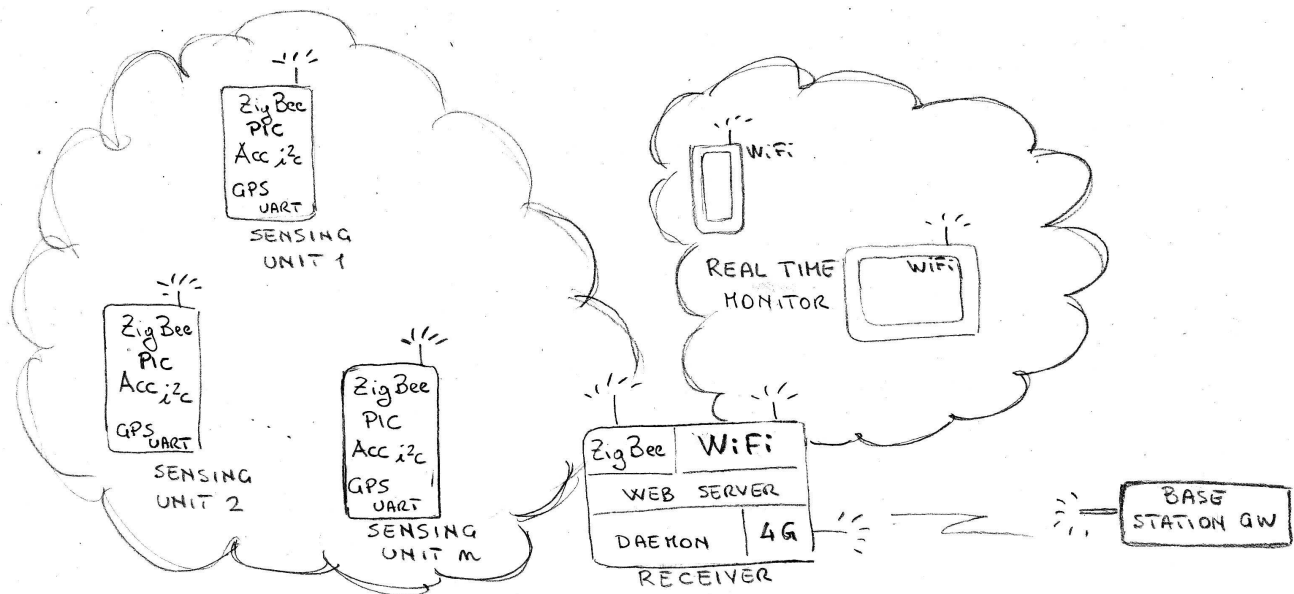 ZigBee
PIC
Acc i²c
GPS
UART
SENSING
UNIT 1
ZigBee
PIC
Acc i²c
GPS
UART
SENSING
UNIT 2
ZigBee
PIC
Acc i²c
GPS
UART
SENSING
UNIT n
WiFi
REAL TIME
MONITOR
WiFi
ZigBee WiFi
WEB SERVER
DAEMON 4G
RECEIVER
BASE
STATION GW